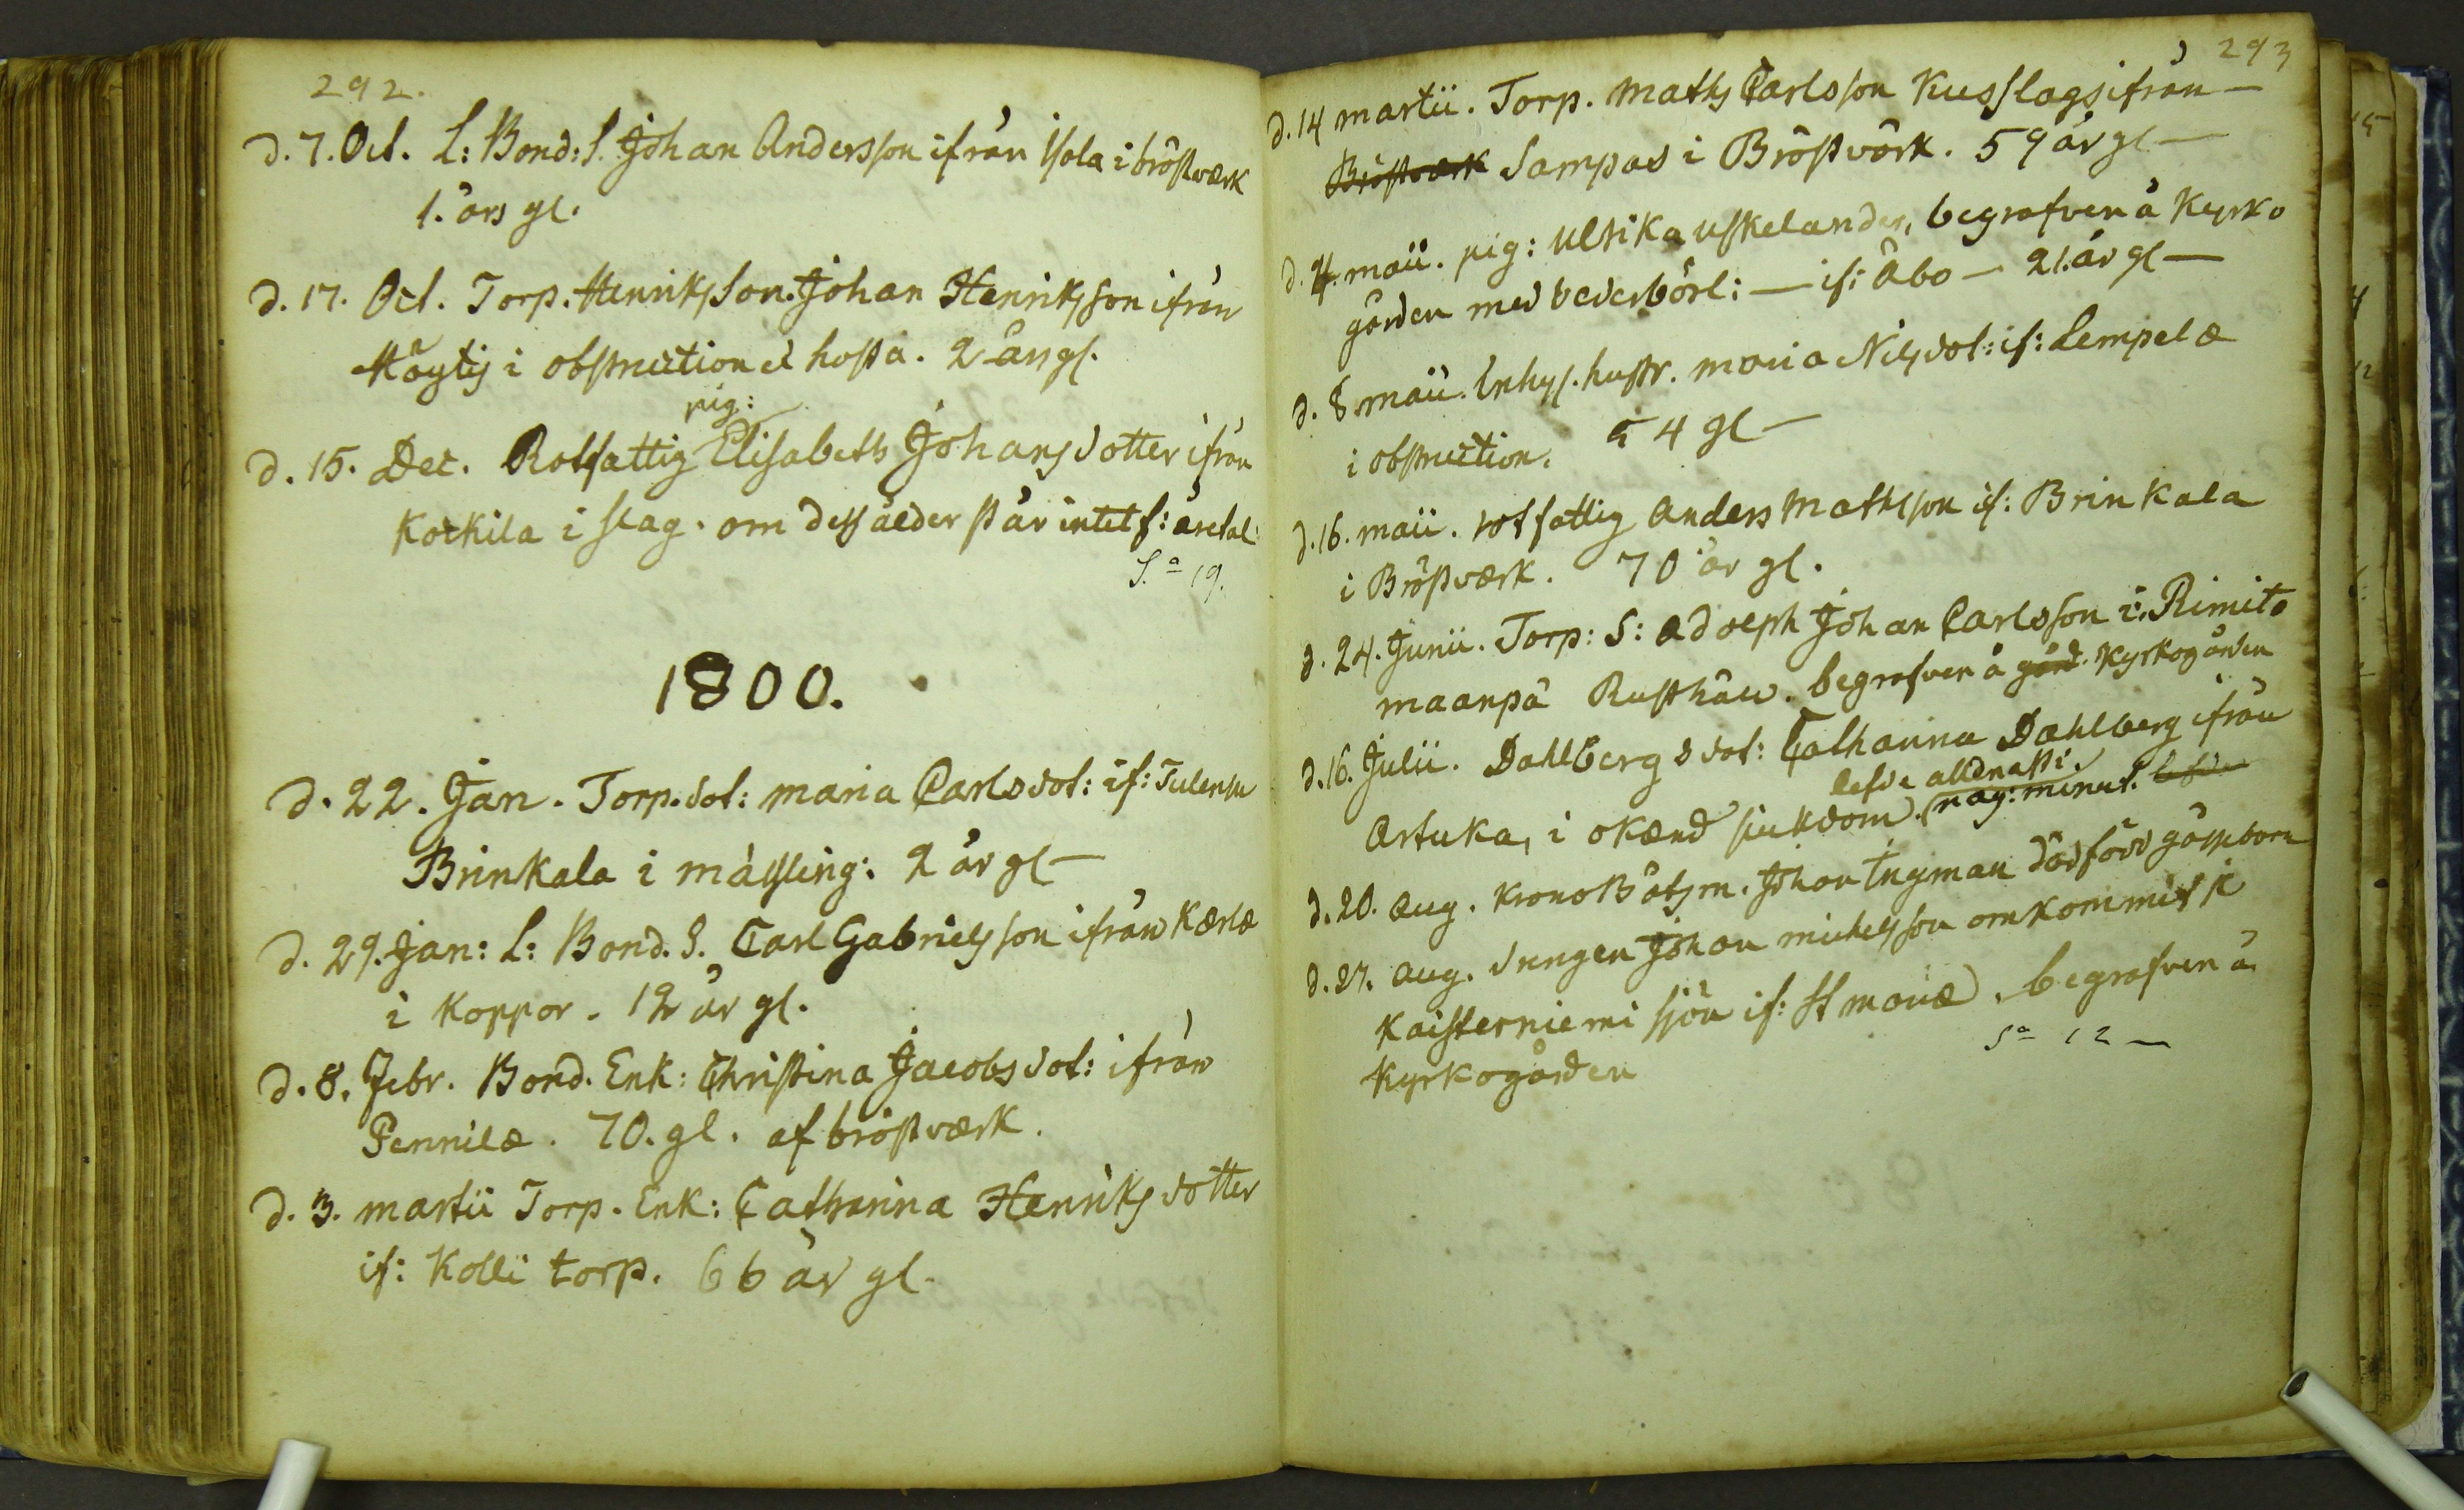 292.
d. 7. Oct. L: Bond: S. Johan Andersson ifrån Isola i bröstværk
1. års gl.
d. 17. Oct. Torp. Henriks Son. Johan Henriksson ifrån
i obstruction et hosta. 2 års gl.
pig:
d. 15. Dec. Rotfattig Elisabeth Johansdotter ifrån
Korkila i slag. om dess ålder står intet f: åretal
S:a 19.
1800.
d. 22. Jan. Torp. dot: maria Carlsdot: if:
Brinkala i mässling: 2 år gl —
d. 29. Jan: L: Bond. S. Carl Gabrielsson ifrån Kærlæ
i Koppor. 12 år gl.
d. 8. Febr. Bond. Enk: Christina Jacobsdot: ifrån
Pennilæ. 70. gl. af bröstværk.
d. 3. martii Torp. Enk: Catharina Henriksdotter
if: Kolli torp. 66 år gl.
293
d. 14 martii. Torp. Maths Carlsson Kusslagsifrån —
Bröstværk Sampas i Bröstvärk. 59 år gl —
d. 4. maii. pig: Ulrika Uskelander, begrafven å Kyrko
gården med vederbörl: — if: Åbo — 21. år gl —
d. 8 maii. Inhys. hustr. maria Nilsdot: if: Lempelæ
i obstruction. 54 gl —
d. 16. maii. rotfattig Anders Mathsson if: Brinkala
i Bröstværk. 70 år gl.
d. 24. Junii. Torp: S: Adolph Johan Carlsson i: Rimito
maanpä Rusthåll. begrafven å gård. Kyrkogården
d. 16. Julii. Dahlbergs dot: Catharina Dahlberg ifrån
lefde allenast i
Artuka, i okænd siukdom. någ: minut. lefde
d. 20. Aug. Krono Båtsm. Johan Engman dödfödd gosse born
d. 27. Aug. Drengen Johan michelsson omkommit i
Kaisterniemi sjön if: St mariæ, begrafven å
Kyrkogården
S:a 12 —